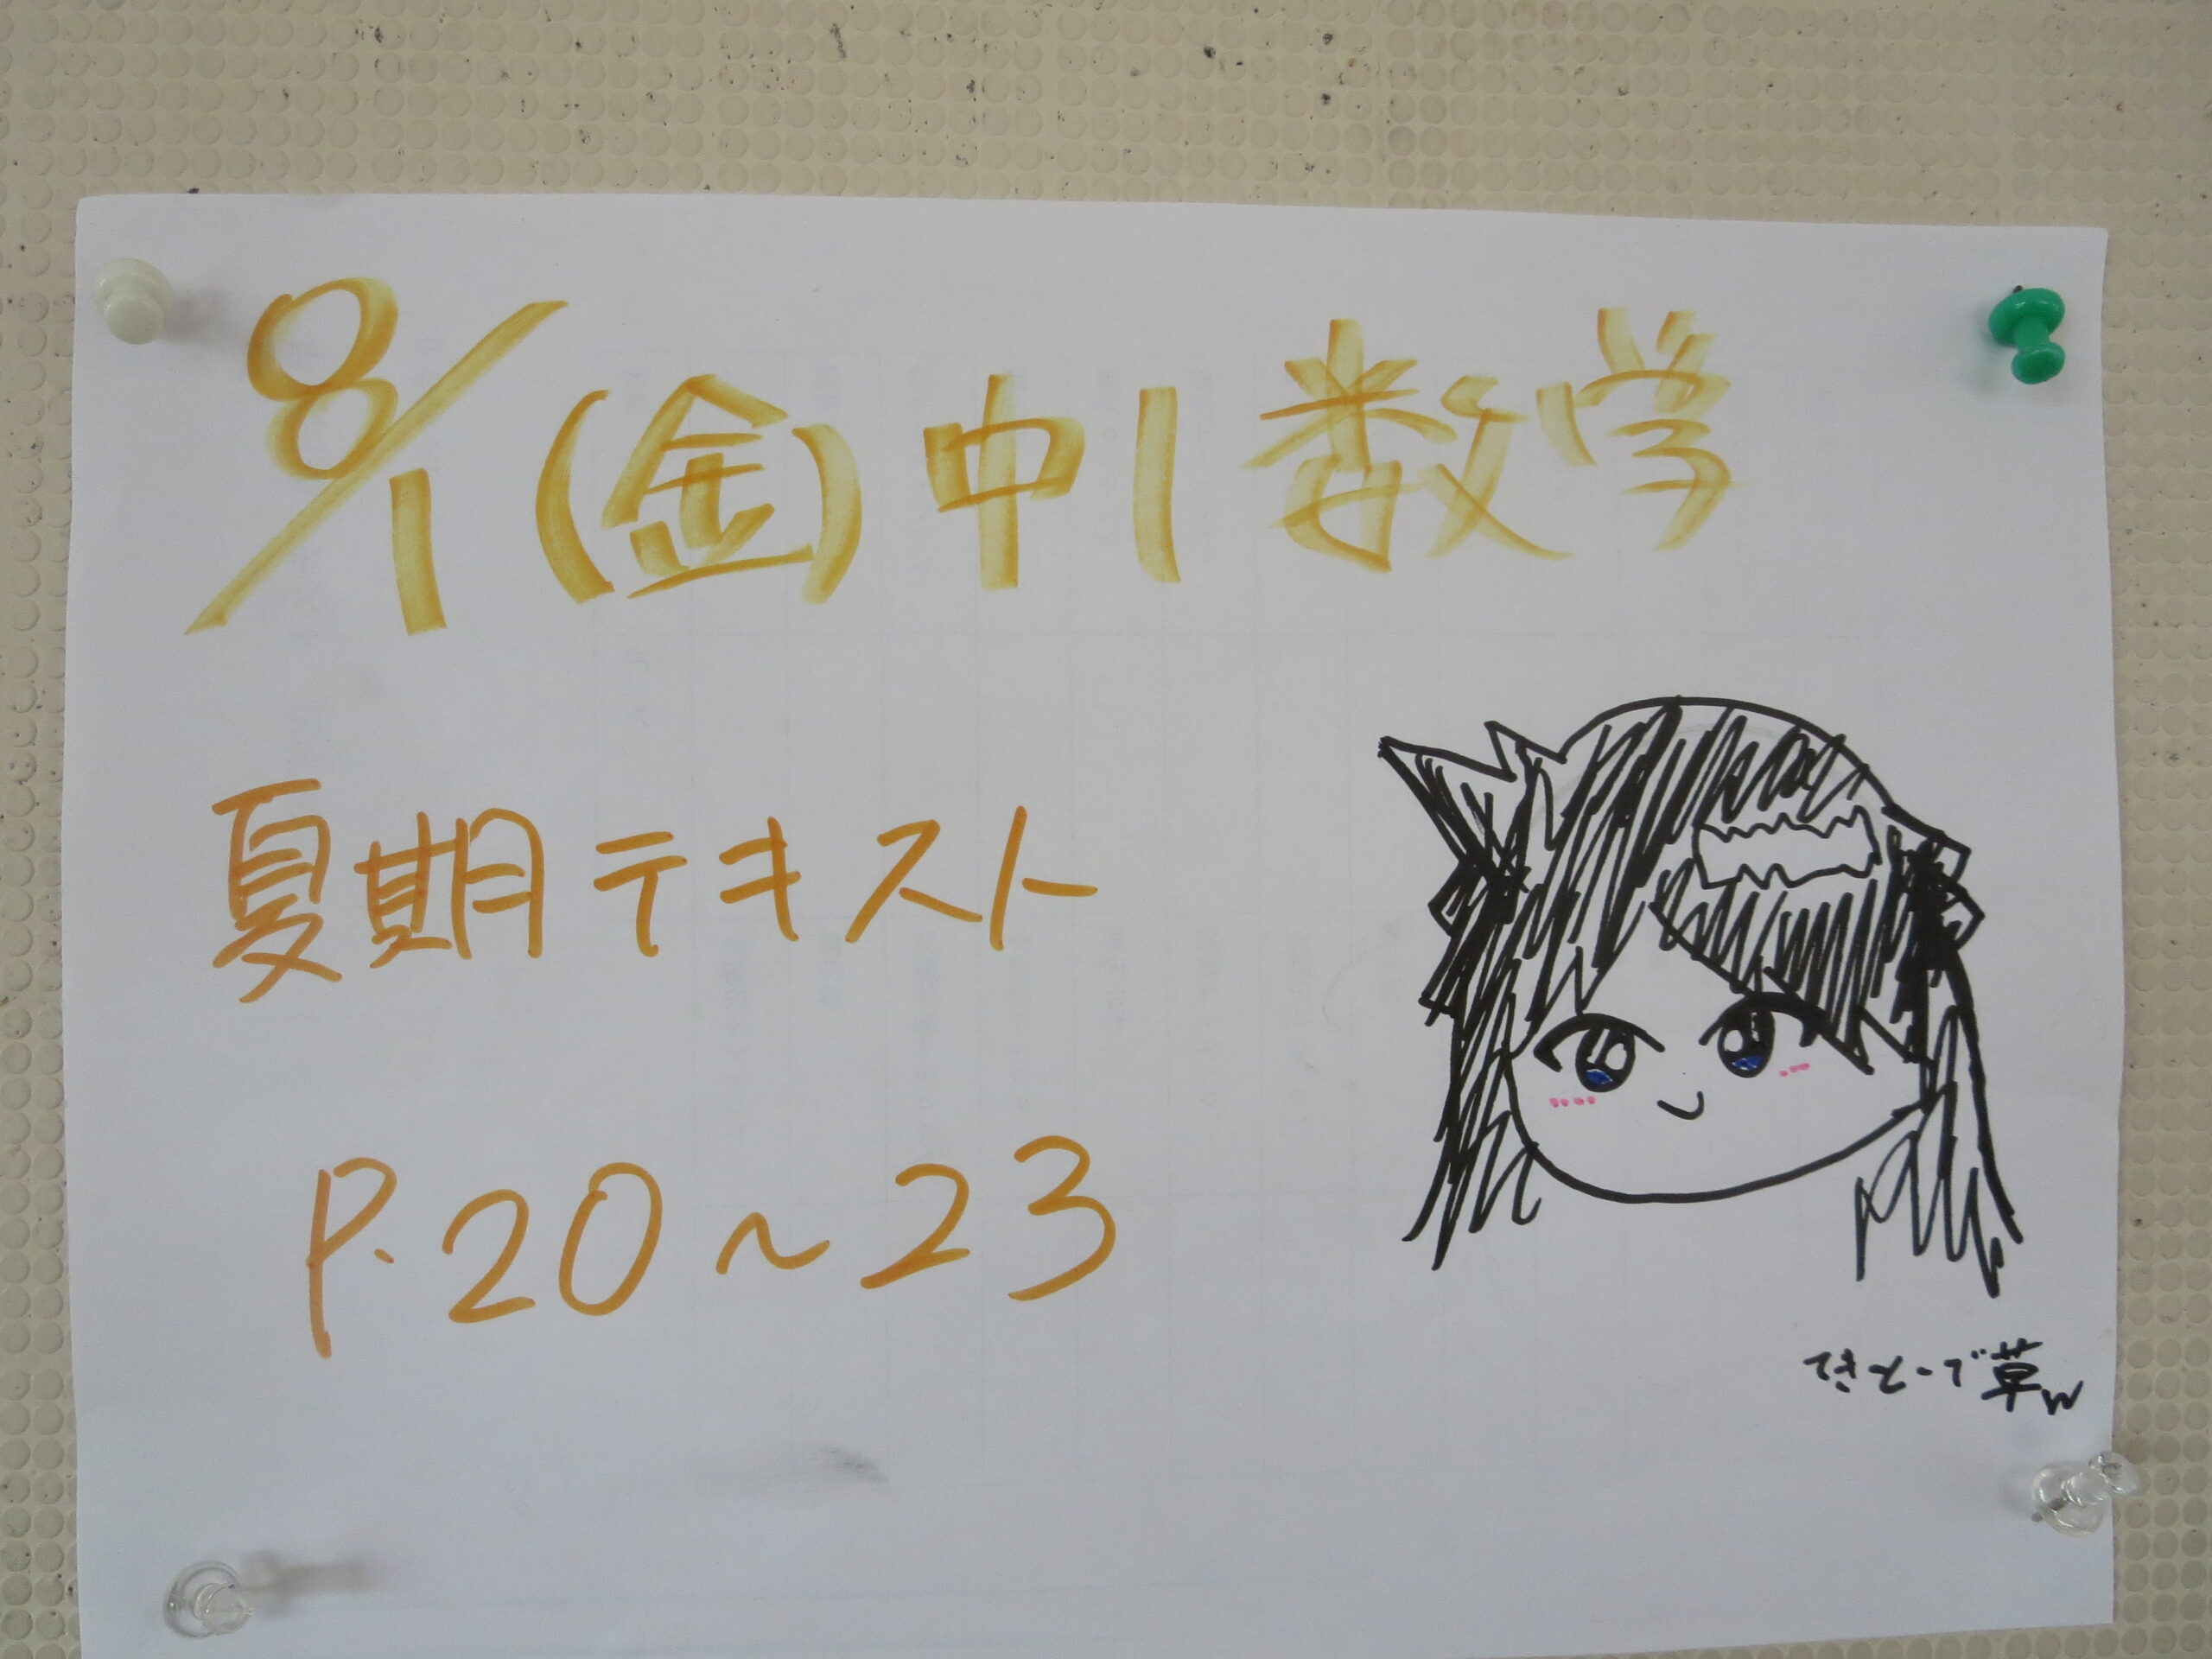 8/1(金)中1数学
夏期テキスト
P.20~23
てきとーで草w